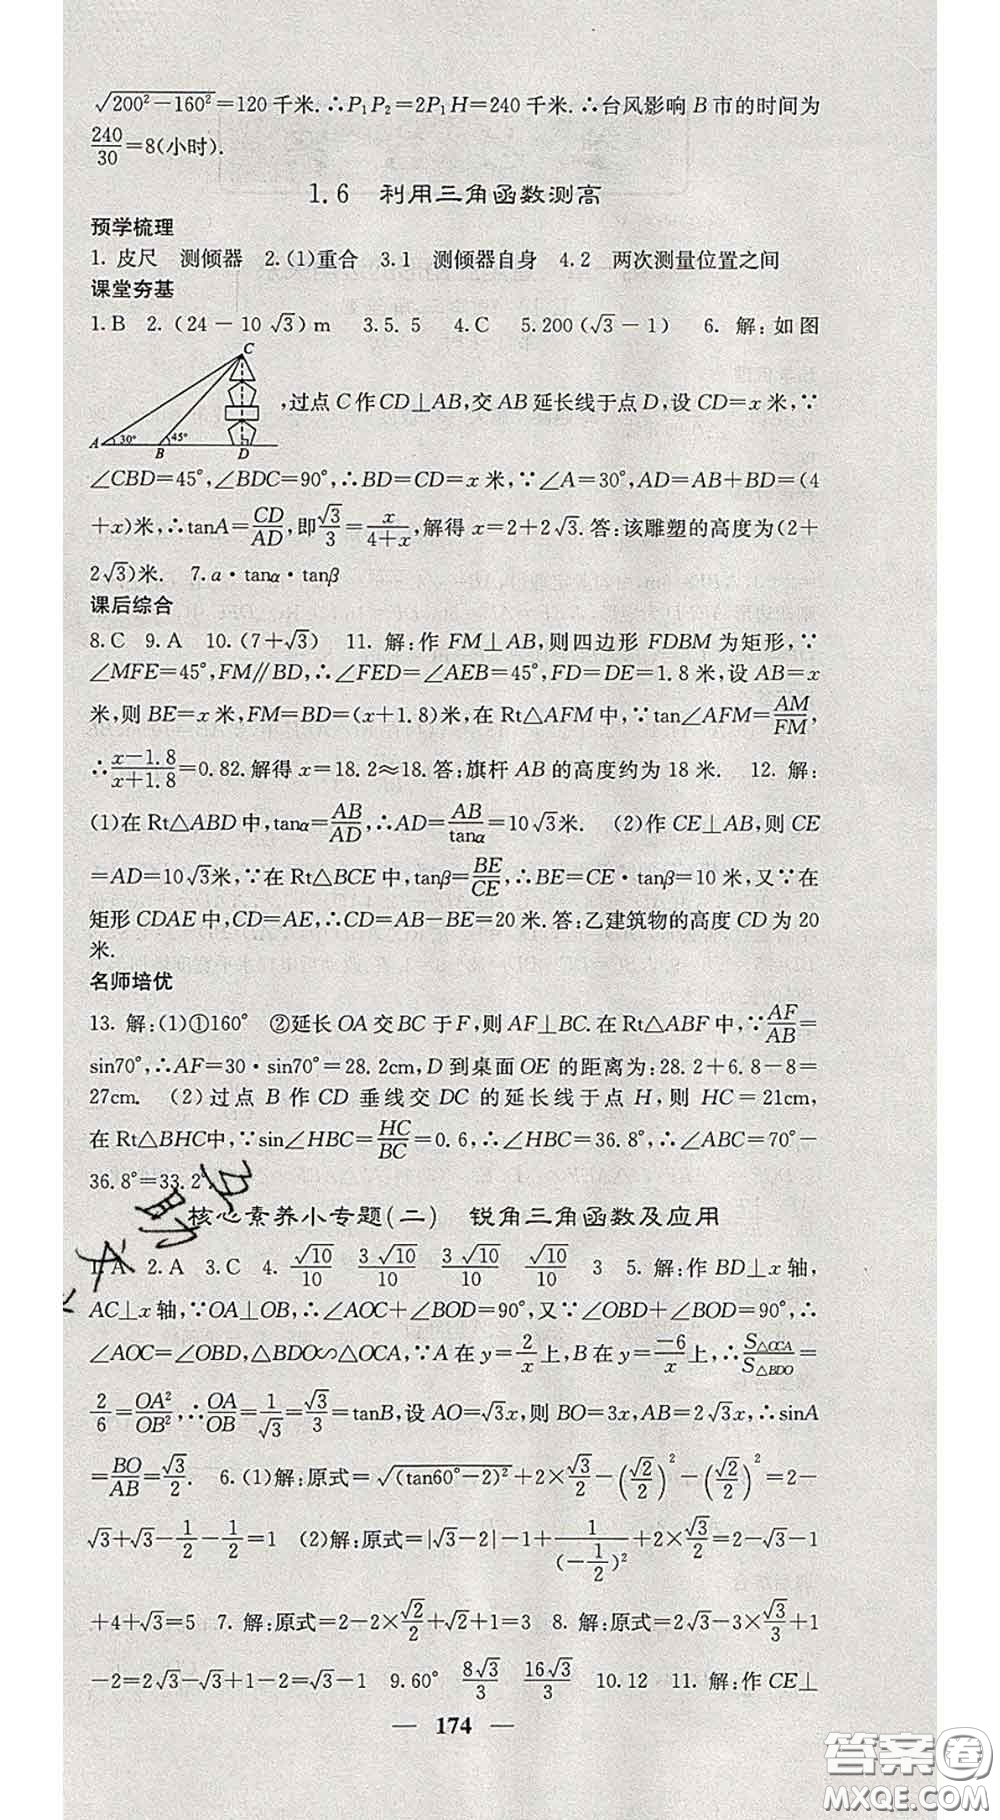 √200²−160²=120 千米.∴P₁P₂=2P₁H=240 千米.∴台风影响 B 市的时间为
240/30=8(小时).
1.6 利用三角函数测高
预学梳理
1. 皮尺 测倾器 2.(1)重合 3.1 测倾器自身 4.2 两次测量位置之间
课堂夯基
1.B 2.(24−10√3)m 3.5.5 4.C 5.200(√3−1) 6. 解:如图
C
A 30° B 45° D
,过点 C 作 CD⊥AB,交 AB 延长线于点 D,设 CD=x 米,∵
∠CBD=45°,∠BDC=90°,∴BD=CD=x 米,∵∠A=30°,AD=AB+BD=(4
+x)米,∴tanA=CD/AD,即√3/3=x/(4+x),解得 x=2+2√3.答:该雕塑的高度为(2+
2√3)米. 7.a·tanα·tanβ
课后综合
8.C 9.A 10.(7+√3) 11. 解:作 FM⊥AB,则四边形 FDBM 为矩形,∵
∠MFE=45°,FM∥BD,∴∠FED=∠AEB=45°,FD=DE=1.8 米,设 AB=x
米,则 BE=x 米,FM=BD=(x+1.8)米,在 Rt△AFM 中,∵tan∠AFM=AM/FM,
∴(x−1.8)/(x+1.8)=0.82.解得 x=18.2≈18.答:旗杆 AB 的高度约为 18 米. 12. 解:
(1)在 Rt△ABD 中,tanα=AB/AD,∴AD=AB/tanα=10√3米. (2)作 CE⊥AB,则 CE
=AD=10√3米,∵在 Rt△BCE 中,tanβ=BE/CE,∴BE=CE·tanβ=10 米,又∵在
矩形 CDAE 中,CD=AE,∴CD=AB−BE=20 米.答:乙建筑物的高度 CD 为 20
米.
名师培优
13. 解:(1)①160° ②延长 OA 交 BC 于 F,则 AF⊥BC.在 Rt△ABF 中,∵AF/AB=
sin70°,∴AF=30·sin70°=28.2cm,D 到桌面 OE 的距离为:28.2+6.8−8=
27cm. (2)过点 B 作 CD 垂线交 DC 的延长线于点 H,则 HC=21cm,
在 Rt△BHC中,∵sin∠HBC=HC/BC=0.6,∴∠HBC=36.8°,∴∠ABC=70°−
36.8°=33.2°.
核心素养小专题(二) 锐角三角函数及应用
1.A 2.A 3.C 4. √10/10 3√10/10 3√10/10 √10/10 3 5. 解:作 BD⊥x 轴,
AC⊥x 轴,∵OA⊥OB,∴∠AOC+∠BOD=90°,又∵∠OBD+∠BOD=90°,∴
∠AOC=∠OBD,△BDO∽△OCA,∵A 在 y=2/x上,B在 y=−6/x上,∴S△OCA/S△BDO=
2/6=OA²/OB²,∴OA/OB=1/√3=√3/3=tanB,设 AO=√3x,则 BO=3x,AB=2√3x,∴sinA
=BO/AB=√3/2. 6.(1)解:原式=√(tan60°−2)²+2×√3/2−(√2/2)²−(√2/2)²=2−
√3+√3−1/2−1/2=1 (2)解:原式=|√3−2|−1+1/(−1/2)²+2×√3/2=2−√3−1
+4+√3=5 7. 解:原式=2−2×√2/2+√2+1=3 8. 解:原式=2√3−3×√3/3+1
−2=2√3−√3+1−2=√3−1 9.60° 8√3/3 16√3/3 10.12 11. 解:作 CE⊥
— 174 —
答案圈
MXQE.COM